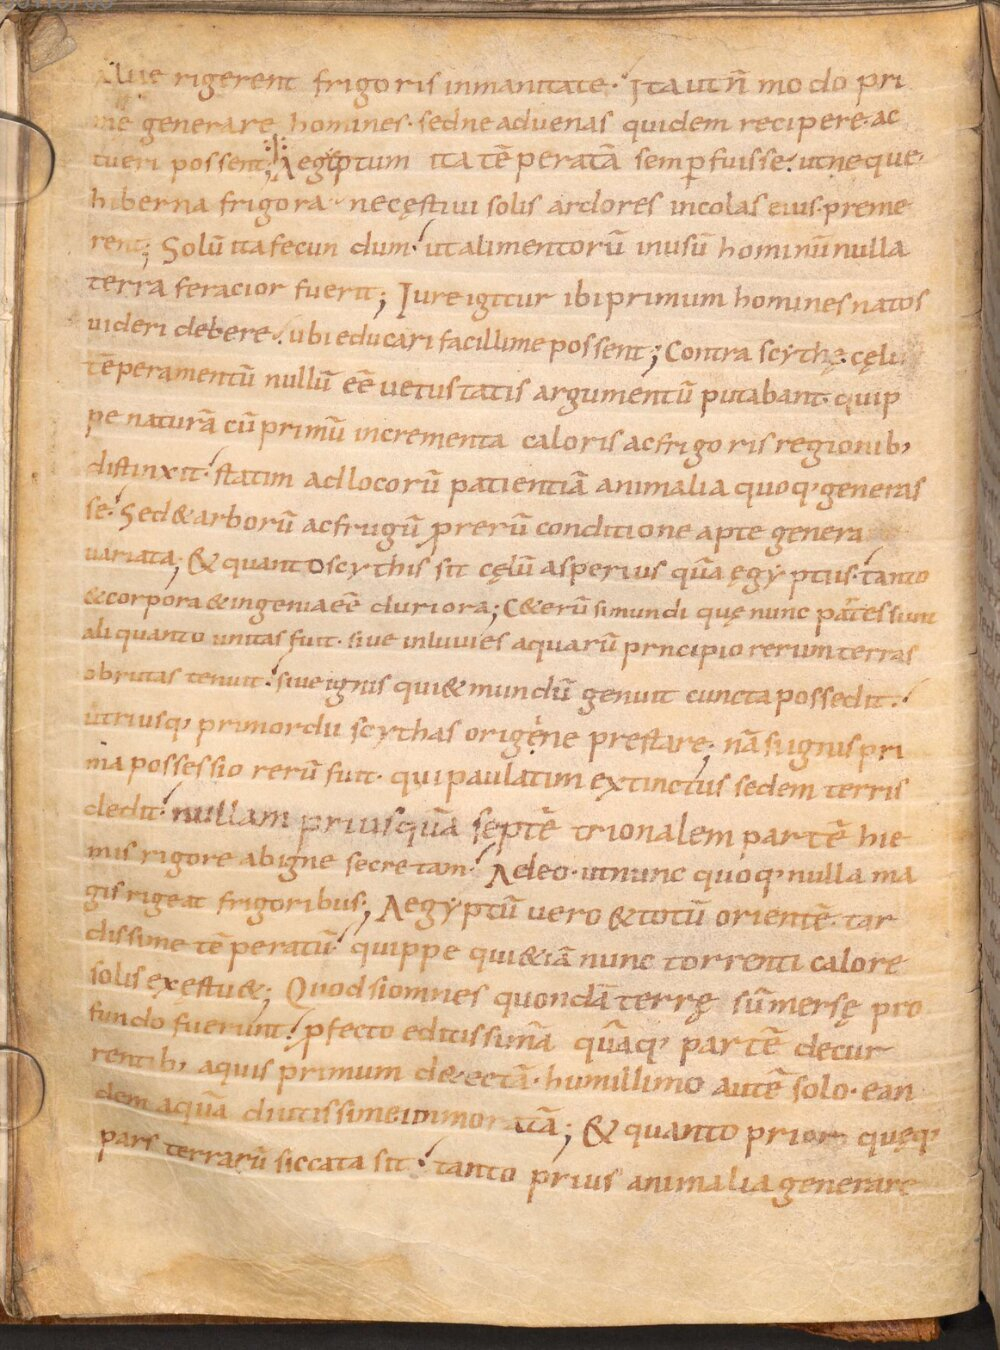 Aue rigerent frigoris inmanitate. Ita ut n̄ modo pri
me generare homines. sed ne aduenas quidem recipere. ac
tueri possent; Aegiptum ita tēperatā semꝑ fuisse. ut neque
hiberna frigora. nec ęstiui solis ardores incolas eius. preme
rent; Solū ita fecundum. ut alimentorū in usū hominū nulla
terra feracior fuerit; Iure igitur ibi primum homines natos
uideri debere. ubi educari facillime possent; Contra scythę. cęlū
tēperamentū nullū eē uetustatis argumentū putabant. quip
pe naturā cū primū incrementa caloris ac frigoris regionib,
distinxit. statim ad locorū patientiā animalia quoq, generas
se. Sed & arborū ac frugū ꝓ rerū conditione apte genera
uariata; & quanto scythis sit cęlū asperius quā ęgyptus. tanto
& corpora & ingenia eē duriora; C&erū si mundi quę nunc partes sunt
aliquanto unitas fuit. siue inluuies aquarū principio rerum terras
obrutas tenuit. siue ignis qui & mundū genuit cuncta possedit.
utriusq, primordii scythas origine prestare. nā si ignis pri
ma possessio rerū fuit. qui paulatim extinctus sedem terris
dedit. nullam prius quā septētrionalem partē hie
mis rigore ab igne secretam. Adeo. ut nunc quoq, nulla ma
gis rigeat frigoribus; Aegyptū uero & totū orientē. tar
dissime tēperatū. quippe qui &iā nunc torrenti calore
solis exęstu&; Quod si omnes quondā terrę sūmersę pro
fundo fuerunt. ꝓfecto editissimā quāq, partē decur
rentib, aquis primum detectā. humillimo autē solo. ean
dem aquā diutissime inmoratā; & quanto prior quęq,
pars terrarū siccata sit. tanto prius animalia generare